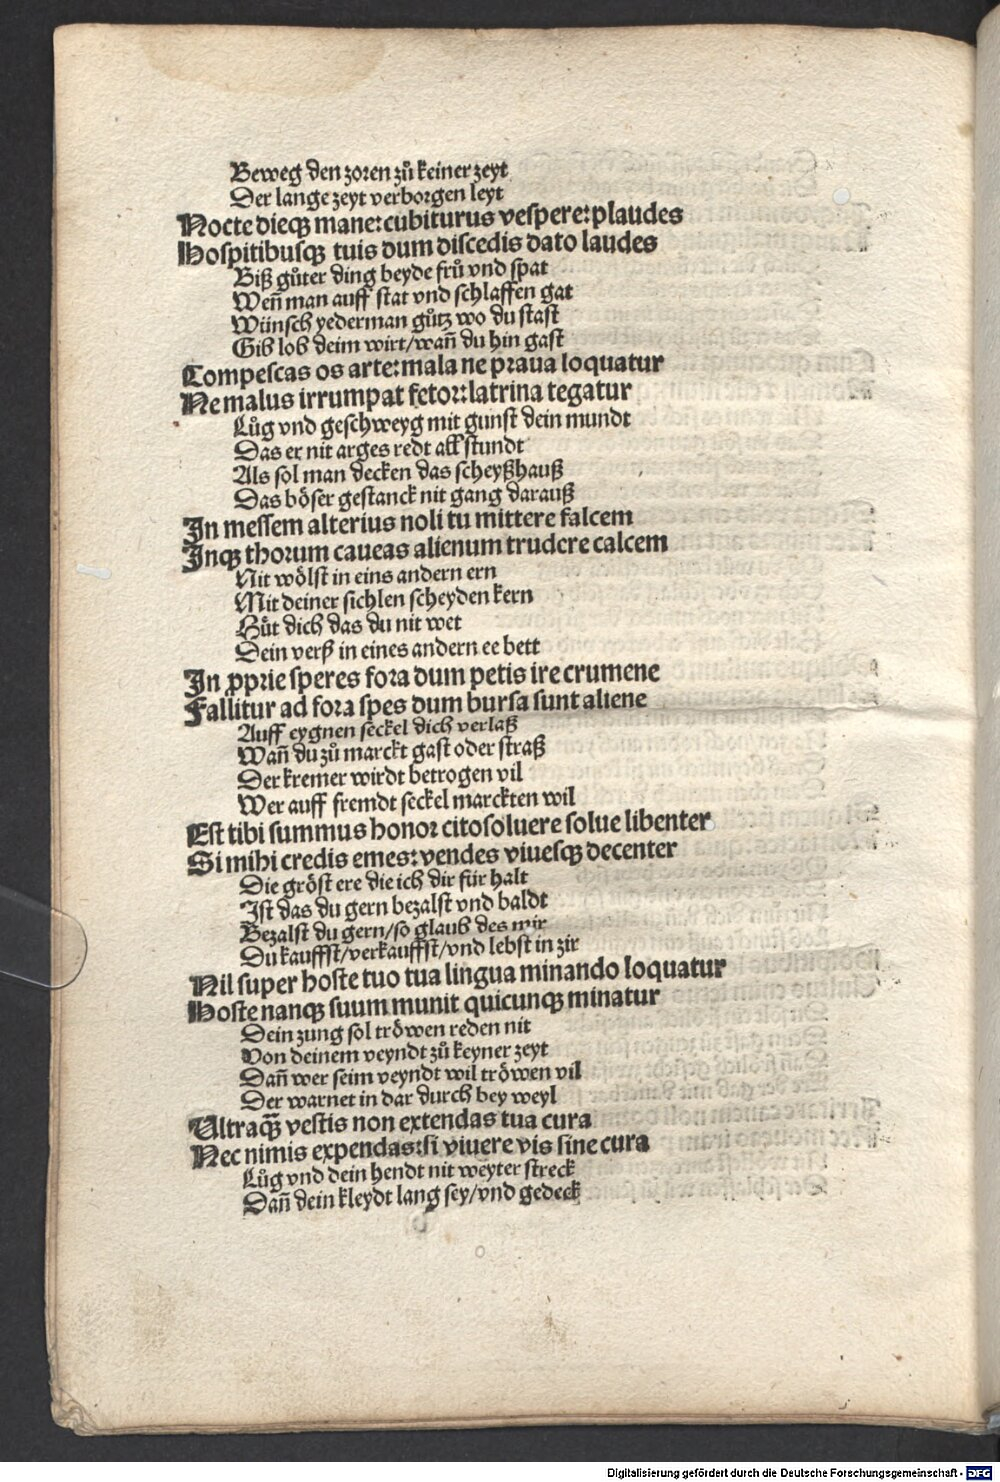 Beweg den zoren zů keiner zeyt
Der lange zeyt verborgen leyt
Nocte dieqꝫ mane: cubiturus vespere: plaudes
Hospitibusqꝫ tuis dum discedis dato laudes
Biß gůter ding beyde frů vnd spat
Weñ man auff stat vnd schlaffen gat
Wünsch yederman gůtz wo du stast
Gib lob deim wirt/wañ du hin gast
Compescas os arte: mala ne praua loquatur
Ne malus irrumpat fetor: latrina tegatur
Lůg vnd geschweyg mit gunst dein mundt
Das er nit arges redt all stundt
Als sol man decken das scheyßhauß
Das böser gestanck nit gang darauß
In messem alterius noli tu mittere falcem
Inqꝫ thorum caueas alienum trudere calcem
Nit wölst in eins andern ern
Mit deiner sichlen scheyden kern
Hůt dich das du nit wet
Dein verß in eines andern ee bett
In ꝓprie speres fora dum petis ire crumene
Fallitur ad fora spes dum bursa sunt aliene
Auff eygnen seckel dich verlaß
Wañ du zů marckt gast oder straß
Der kremer wirdt betrogen vil
Wer auff fremdt seckel marckten wil
Est tibi summus honor cito soluere solue libenter
Si mihi credis emes: vendes viuesqꝫ decenter
Die gröst ere die ich dir für halt
Ist das du gern bezalst vnd baldt
Bezalst du gern/so glaub des mir
Du kauffst/verkauffst/vnd lebst in zir
Nil super hoste tuo tua lingua minando loquatur
Hoste nanqꝫ suum munit quicunqꝫ minatur
Dein zung sol tröwen reden nit
Von deinem veyndt zů keyner zeyt
Dañ wer seim veyndt wil tröwen vil
Der warnet in dar durch bey weyl
Ultra qꝫ̃ vestis non extendas tua cura
Nec nimis expendas: si viuere vis sine cura
Lůg vnd dein hendt nit weyter streck
Dañ dein kleydt lang sey/vnd gedeck
Digitalisierung gefördert durch die Deutsche Forschungsgemeinschaft - DFG